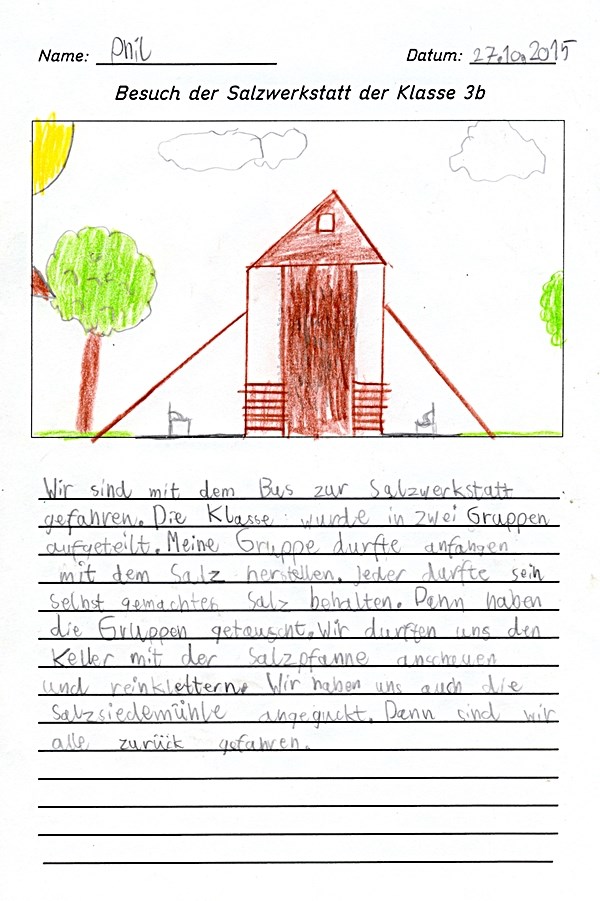 Name: Phil
Datum: 27.10.2015
Besuch der Salzwerkstatt der Klasse 3b
Wir sind mit dem Bus zur Salzwerkstatt
gefahren. Die Klasse wurde in zwei Gruppen
aufgeteilt. Meine Gruppe durfte anfangen
mit dem Salz herstellen. Jeder durfte sein
selbst gemachtes Salz behalten. Dann haben
die Gruppen getauscht. Wir durften uns den
Keller mit der Salzpfanne anschauen
und reinklettern. Wir haben uns auch die
Salzsiedemühle angeguckt. Dann sind wir
alle zurück gefahren.